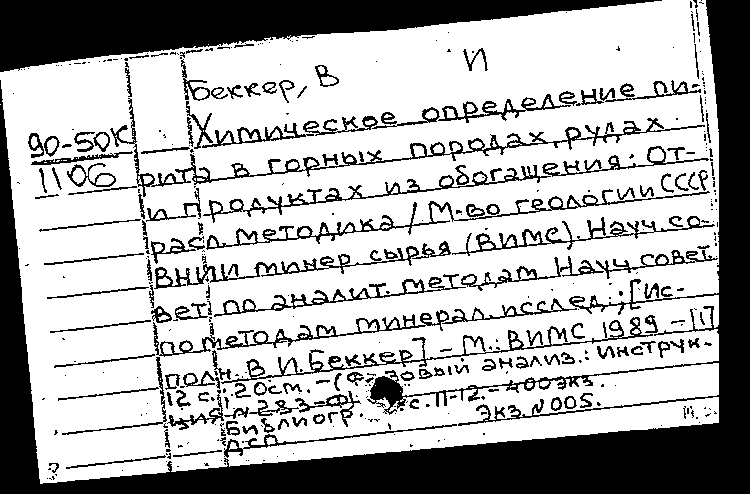 Беккер, В И
90-50К
1106
Химическое определение пи-
рита в горных породах, рудах
и продуктах из обогащения: От-
расл. методика / М-во геологии СССР
ВНИИ минер. сырья (ВИМС). Науч. со-
вет по аналит. методам Науч. совет
по методам минерал. исслед.; [Ис-
полн. В. И. Беккер] - М.: ВИМС, 1989. - [1],
12 с.; 20 см. - (Фазовый анализ.: Инструк-
ция № 283-Ф)
Библиогр. с. 11-12. - 400 экз.
ДСП. Экз. N 005.